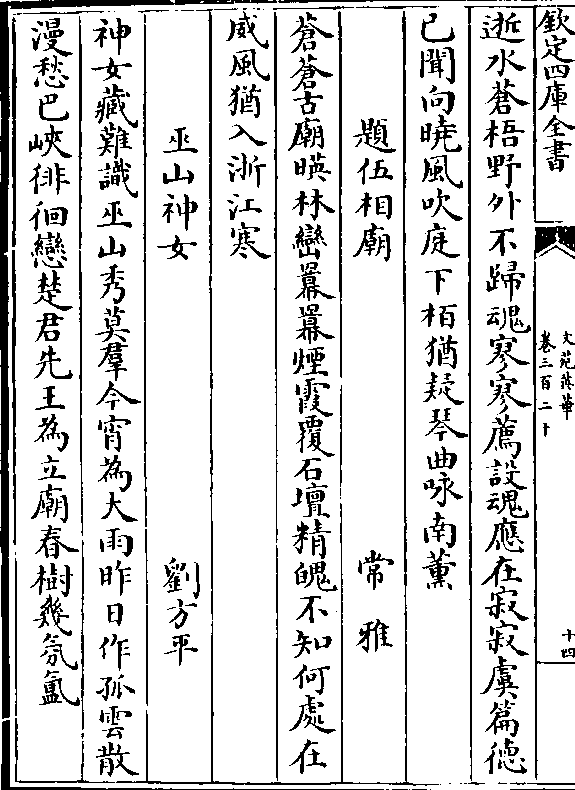 欽定四庫全書
文苑英華
卷三百二十
十四
逝水蒼梧野外不歸魂寥寥薦設魂應在寂寂虞篇徳
已聞向曉風吹庭下栢猶疑琴曲咏南薫
題伍相廟 常雅
蒼蒼古廟暎林巒羃羃煙霞覆石壇精魄不知何處在
威風猶入浙江寒
巫山神女 劉方平
神女藏難識巫山秀莫羣今宵為大雨昨日作孤雲散
漫愁巴峽徘徊戀楚君先王為立廟春樹幾氛氲